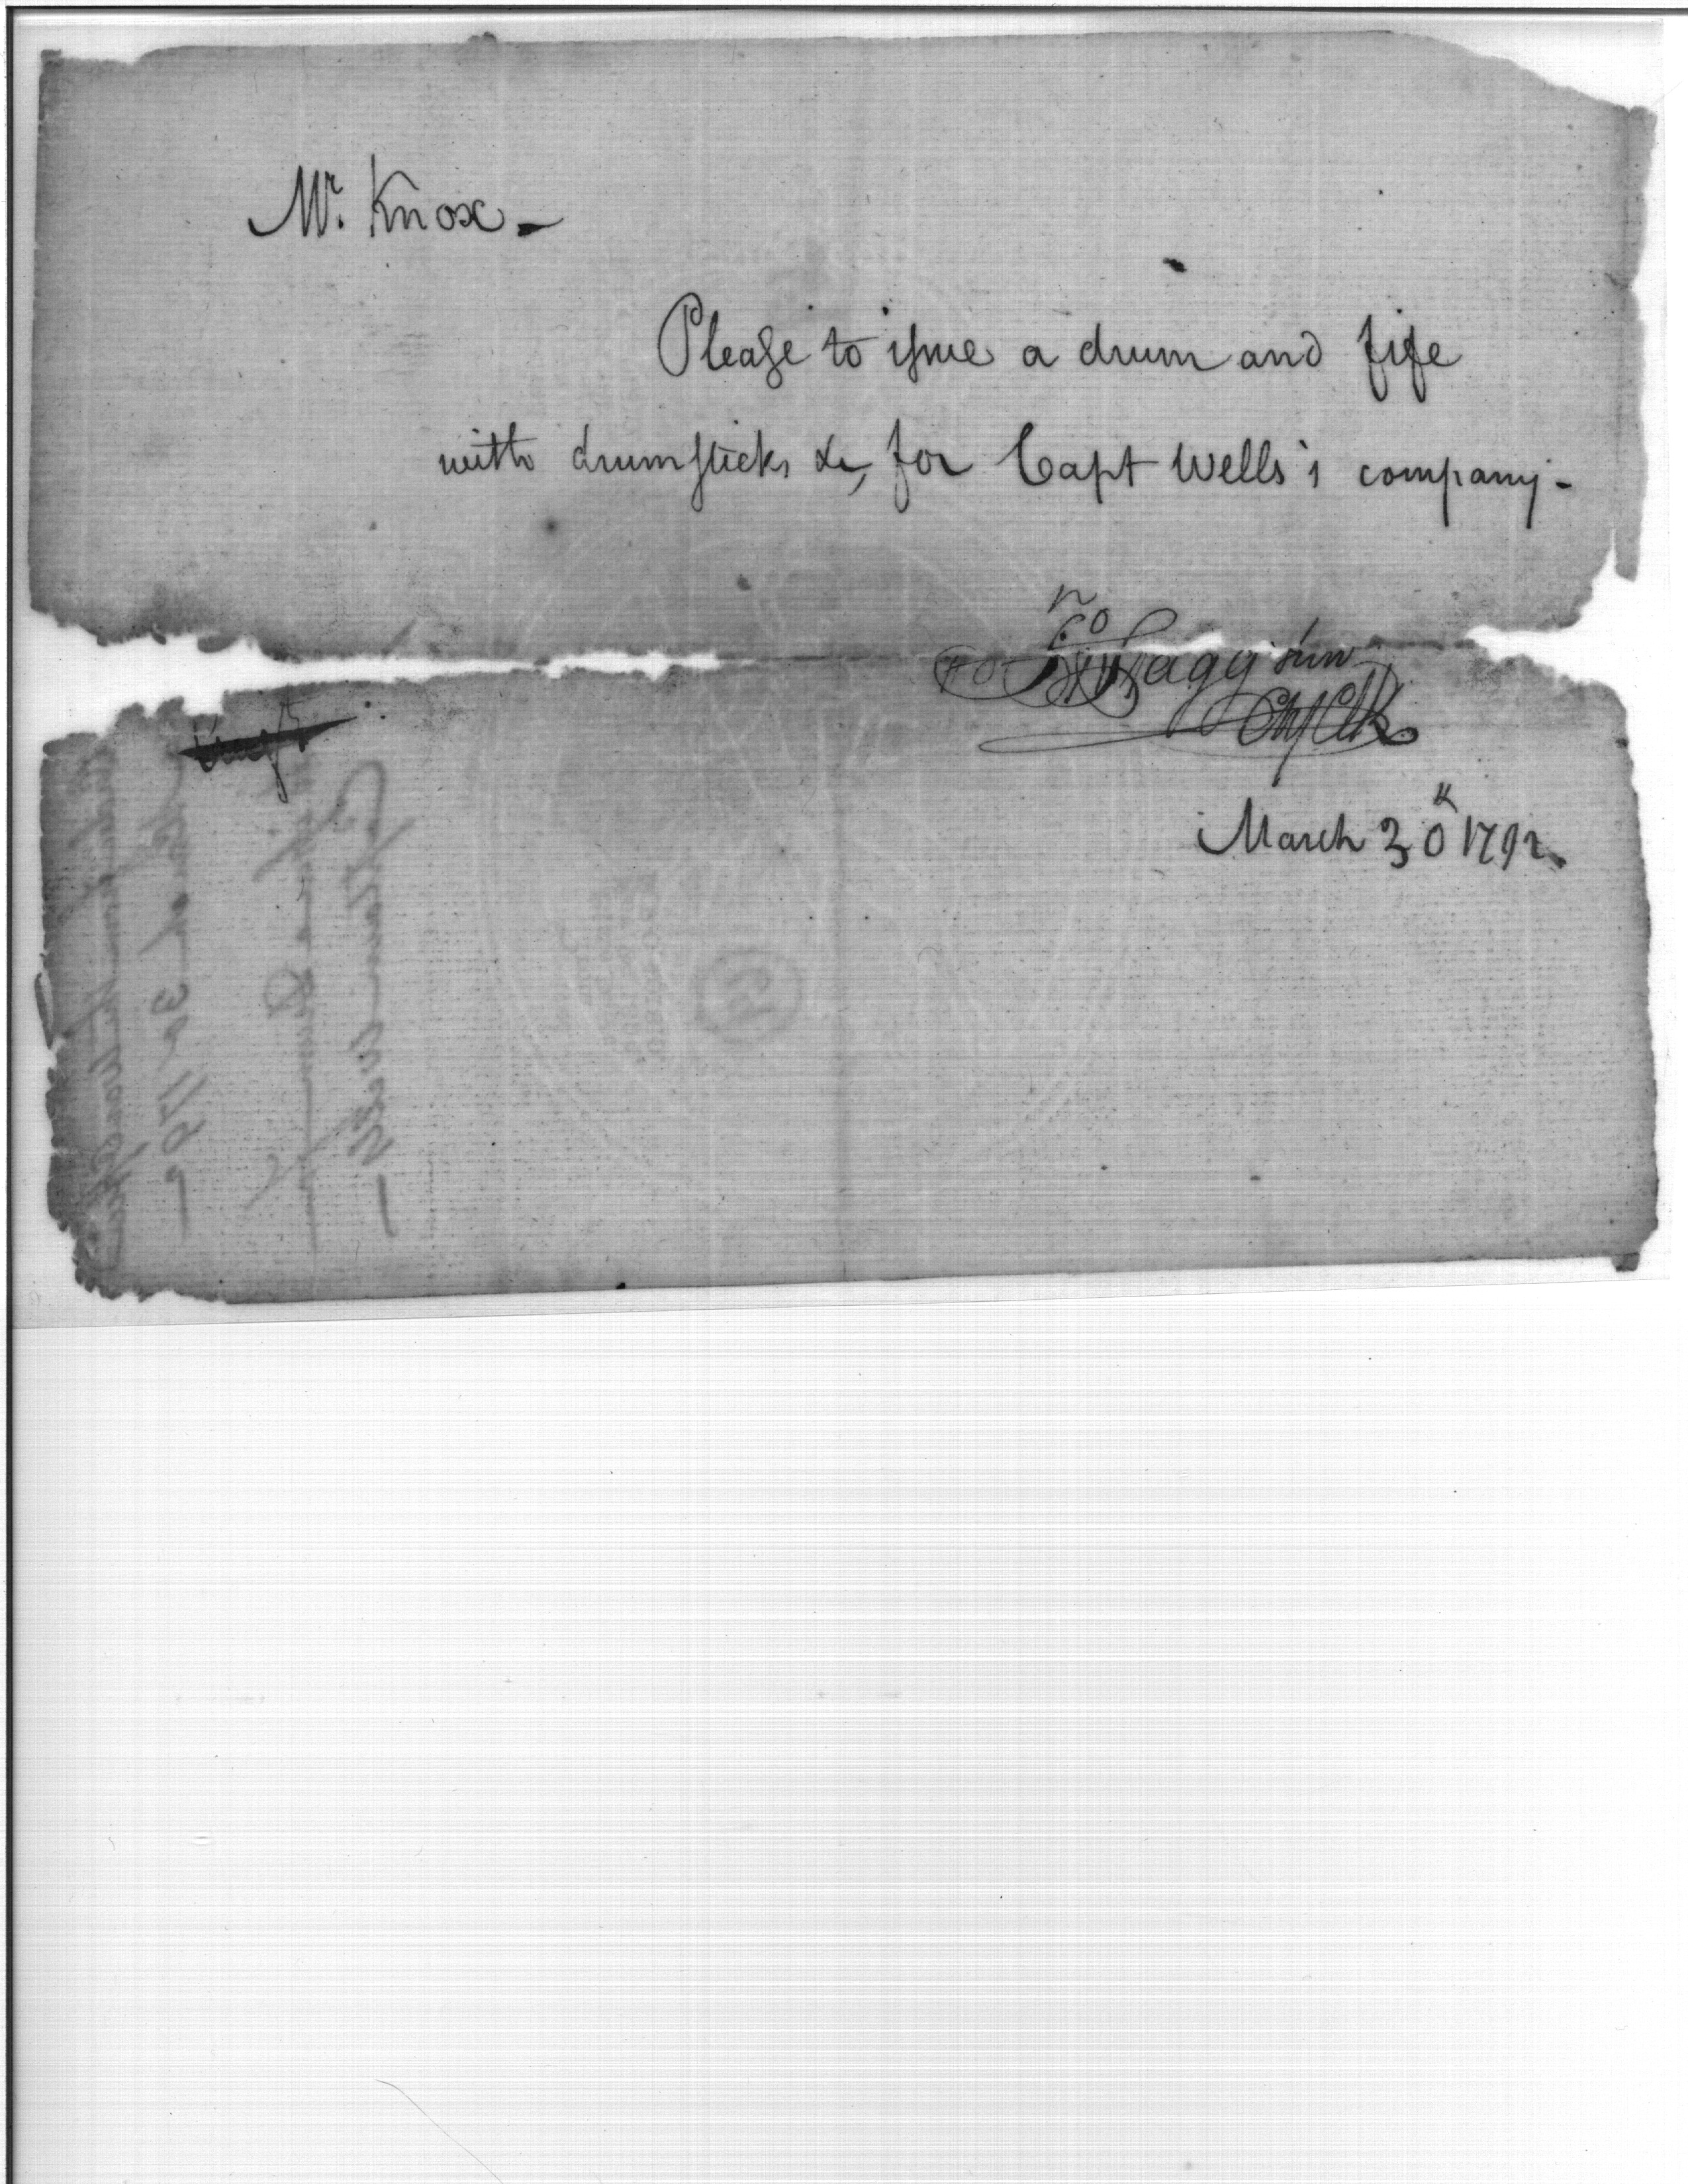 Mr. Knox -
Please to issue a drum and fife
with drumsticks &c, for Capt Wells's company -
Jno Stagg junr
Chf Clk
March 30th 1792.